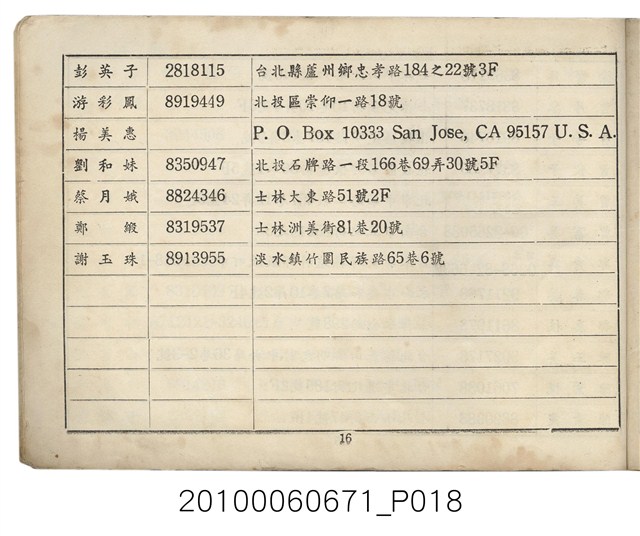 彭英子 2818115 台北縣蘆州鄉忠孝路184之22號3F
游彩鳳 8919449 北投區崇仰一路18號
楊美惠 P. O. Box 10333 San Jose, CA 95157 U. S. A.
劉和妹 8350947 北投石牌路一段166巷69弄30號5F
蔡月娥 8824346 士林大東路51號2F
鄭緞 8319537 士林洲美街81巷20號
謝玉珠 8913955 淡水鎮竹圍民族路65巷6號
16
20100060671_P018